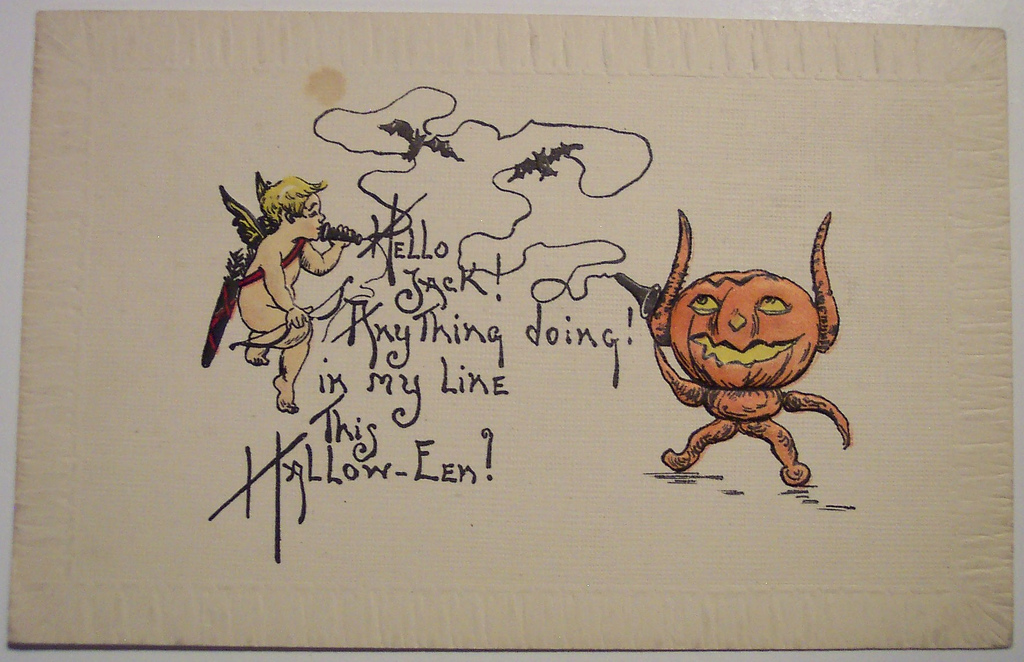 Hello
Jack!
Anything doing!
in my Line
This
Hallow-Een?